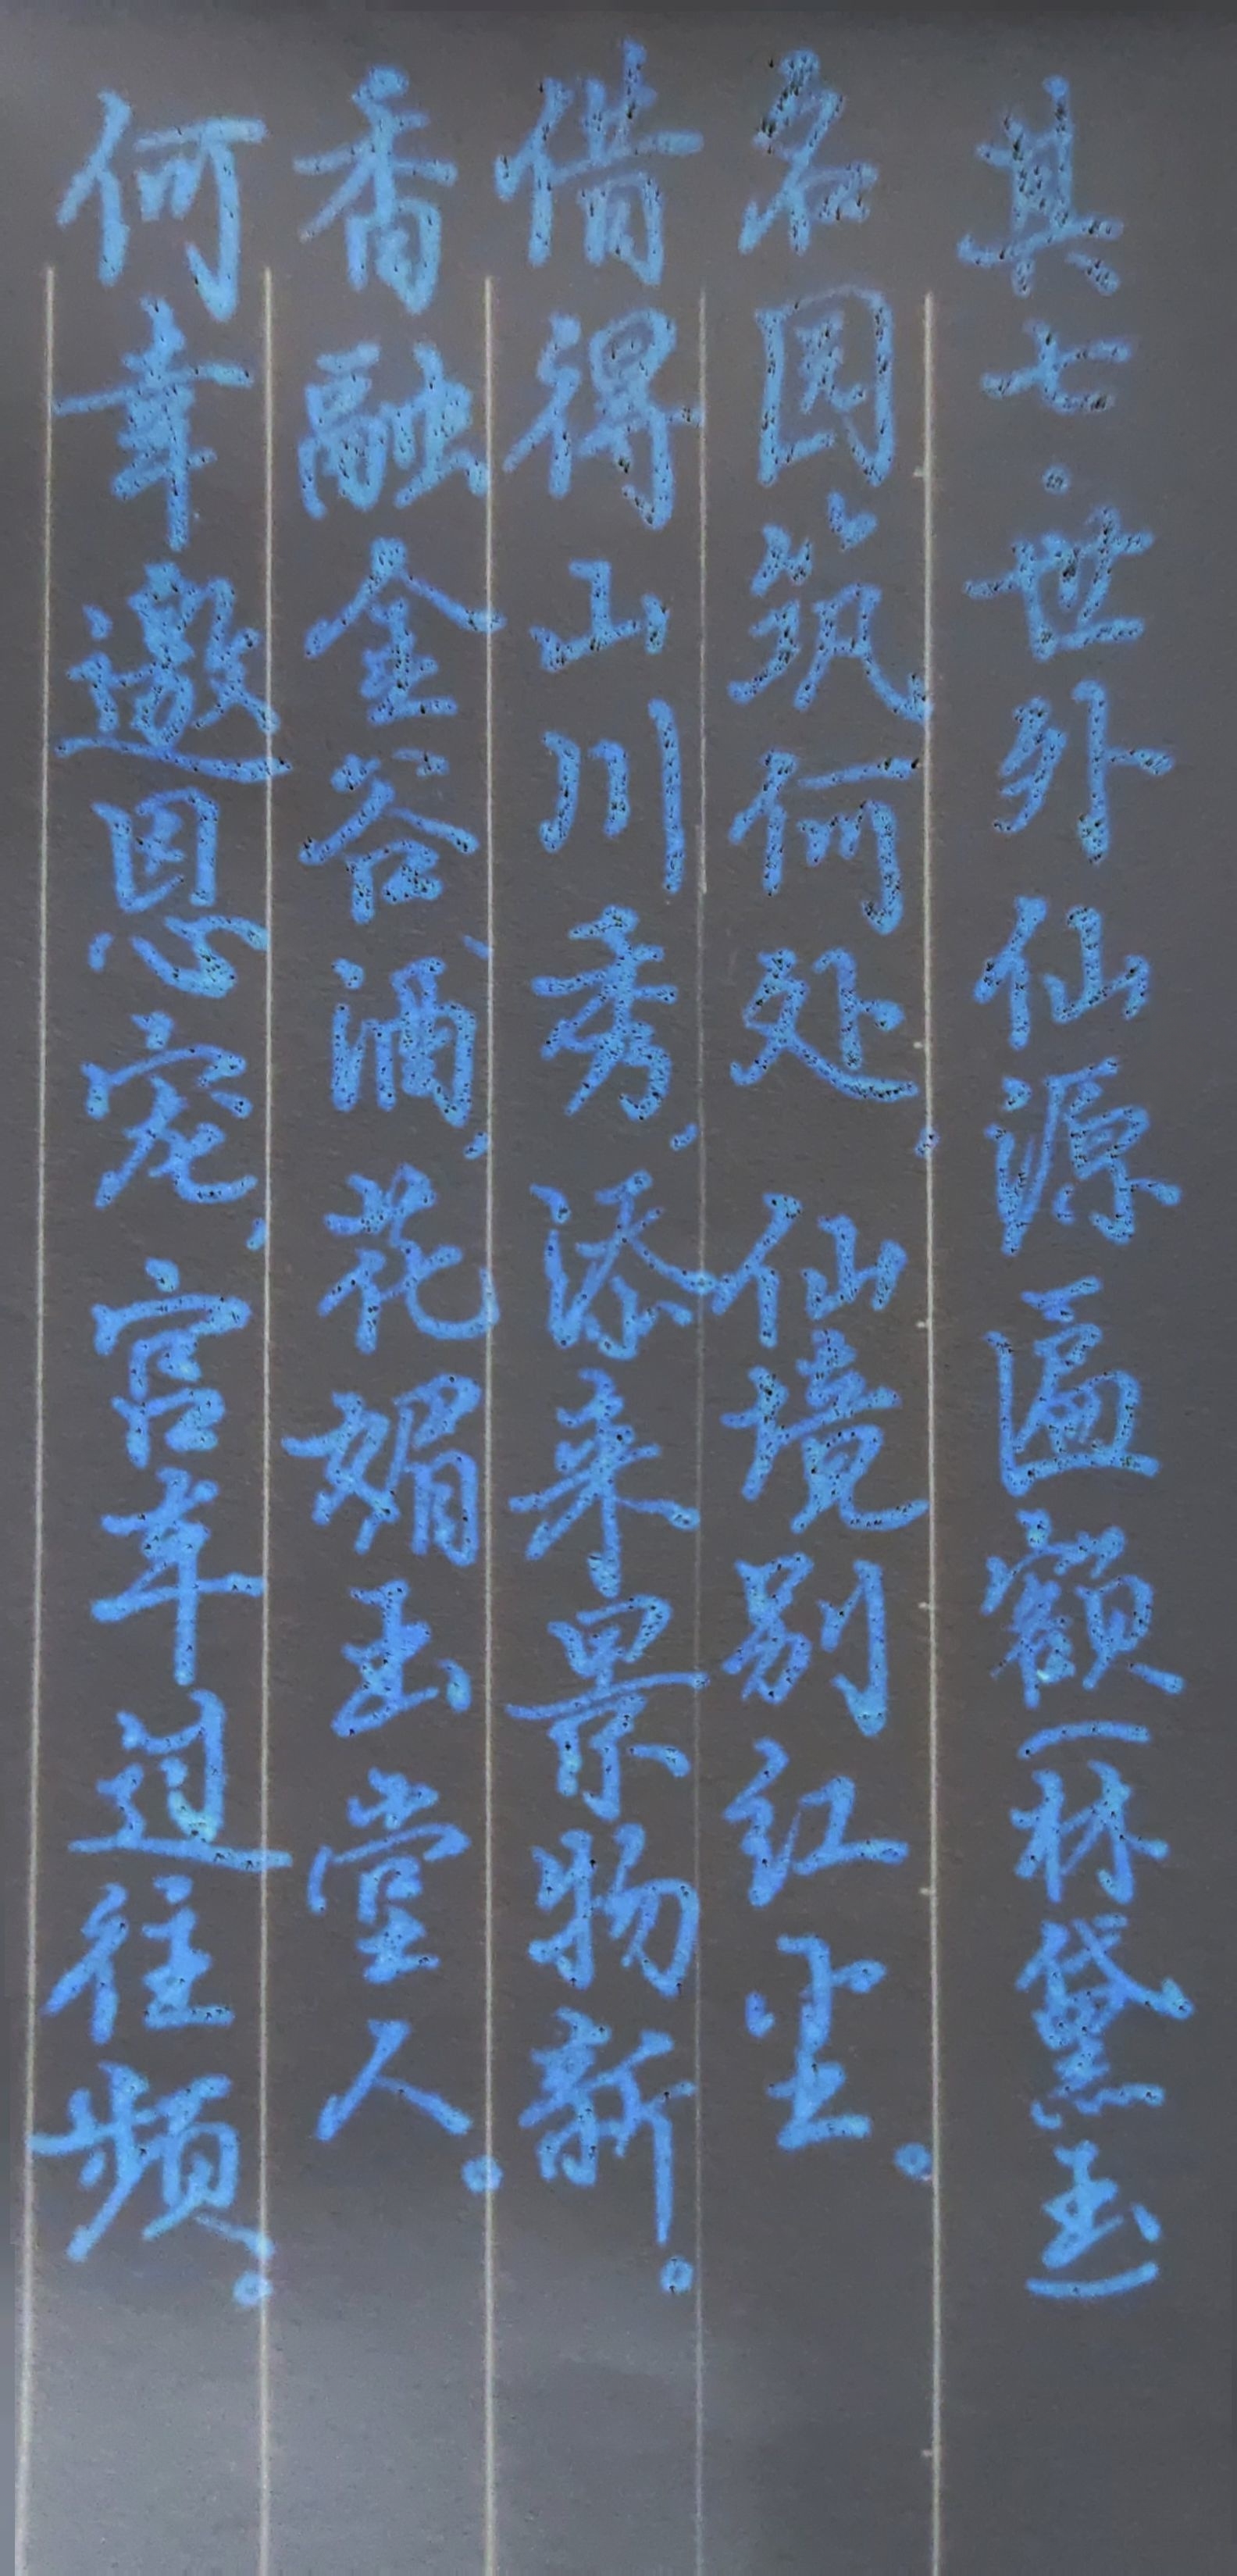 其七·世外仙源匾额(林黛玉)
名园筑何处,仙境别红尘。
借得山川秀,添来景物新。
香融金谷酒,花媚玉堂人。
何幸邀恩宠,宫车过往频。